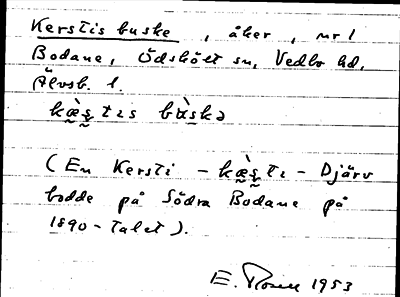 Kerstis buske, åker, nr 1
Bodane, Ödskölt sn, Vedbo hd,
Älvsb. l.
kæ̀ş tıs bùskə
(En Kersti - kæ̀ş tı - Djärv
bodde på Södra Bodane på
1890-talet).
E. 1953